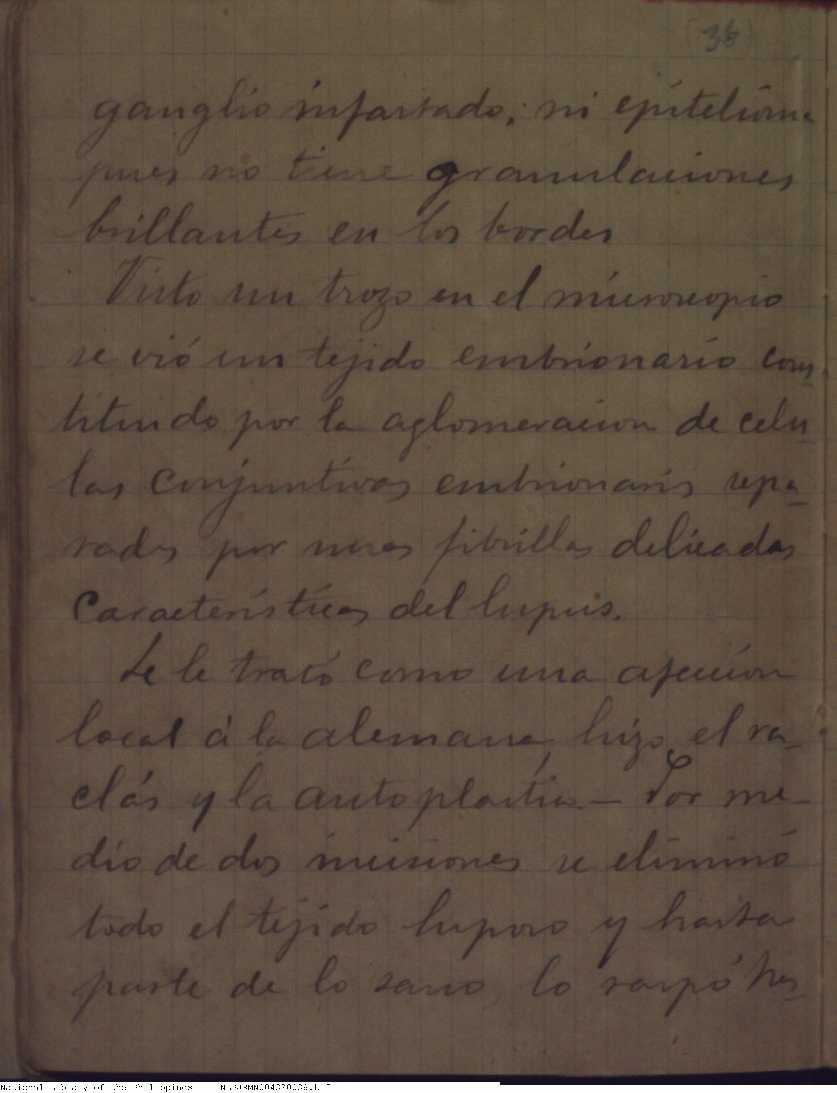 (36)
ganglio infartado; ni epitelioma
pues no tiene granulaciones
brillantes en los bordes
Visto un trozo en el microscopio
se vió un tejido embrionario cons_
tituido por la aglomeracion de celu_
las conjuntivas embrionaris sepa_
rades por unas fibrillas delicadas
características del lupus.
Se le trató como una afección
local á la alemana, hizo el ra_
clás y la autoplastia — Por me_
dio de dos incisiones se eliminó
todo el tejido luposo y hasta
parte de lo sano lo raspó
National Library of the Philippines